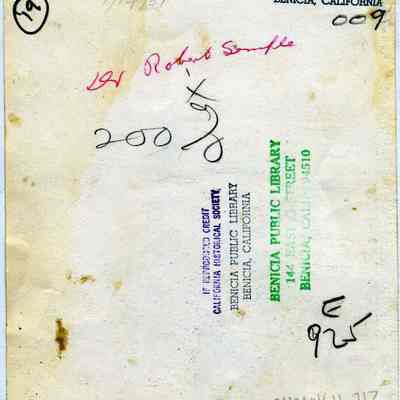 BENICIA, CALIFORNIA
009
Dr Robert Semple
200
IF REPRODUCED CREDIT
CALIFORNIA HISTORICAL SOCIETY,
BENICIA PUBLIC LIBRARY
BENICIA, CALIFORNIA
BENICIA PUBLIC LIBRARY
144 EAST G STREET
BENICIA, CALIF. 94510
E
925